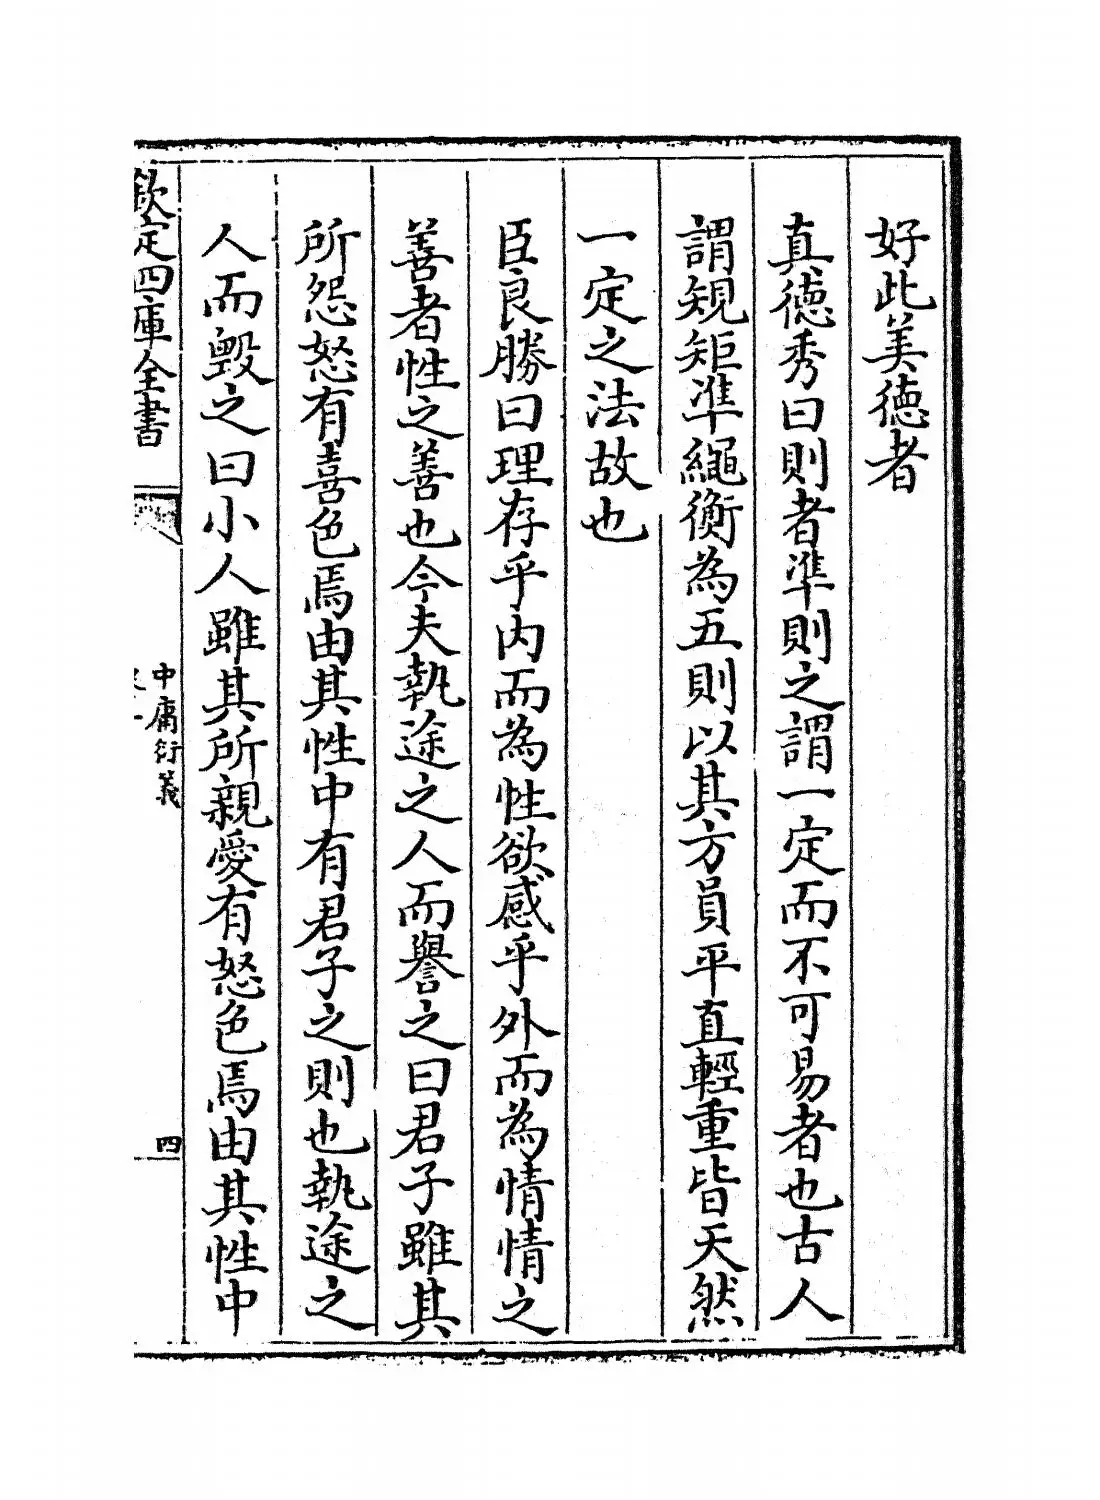 好此美德者
真德秀曰則者準則之謂一定而不可易者也古人
謂規矩準繩衡為五則以其方員平直輕重皆天然
一定之法故也
臣良勝曰理存乎内而為性欲感乎外而為情情之
善者性之善也今夫執途之人而譽之曰君子雖其
所怨怒有喜色焉由其性中有君子之則也執途之
人而毀之曰小人雖其所親愛有怒色焉由其性中
欽定四庫全書
中庸衍義
四